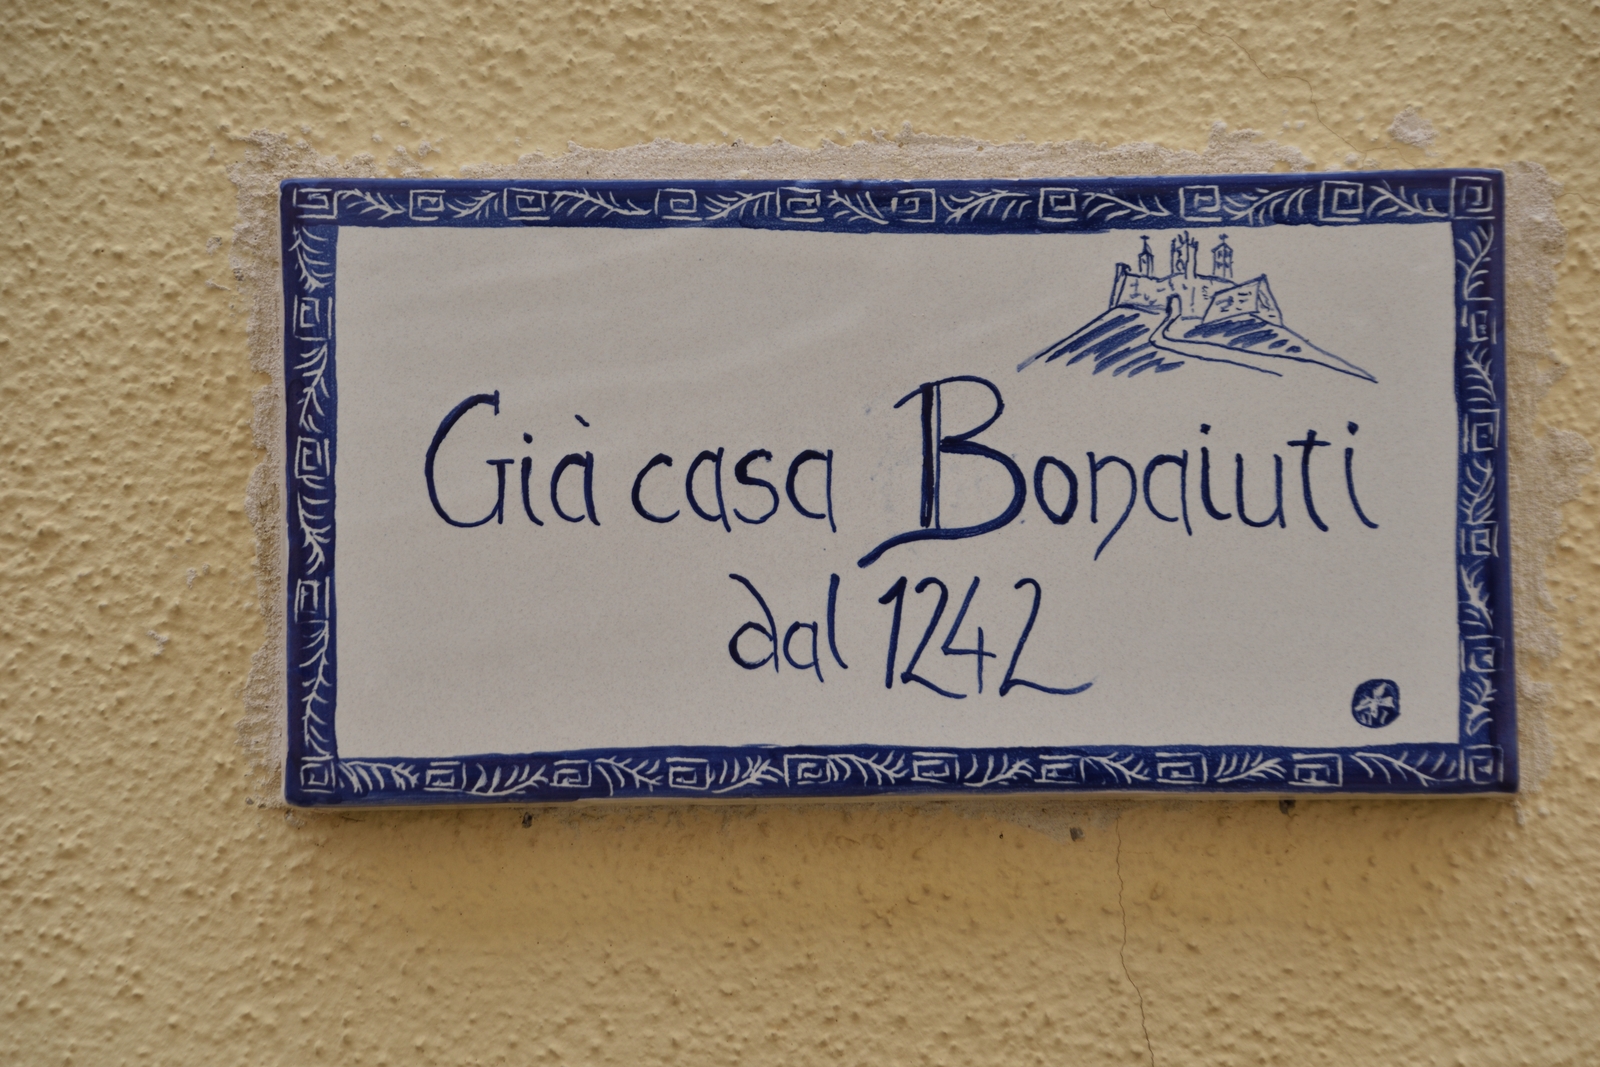 Già casa Bonaiuti
dal 1242